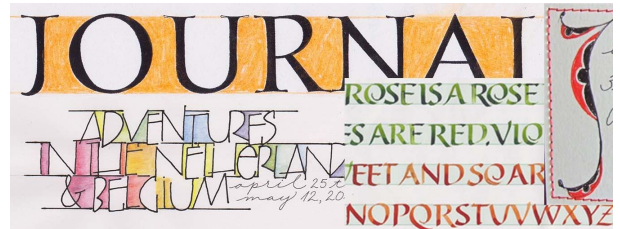 JOURNAL
ADVENTURES
IN THE NETHERLAN
& BELGIUM april 25 t
may 12, 20
ROSE IS A ROSE
ES ARE RED, VIO
EET AND SOAR
NOPQRSTUVWXYZ